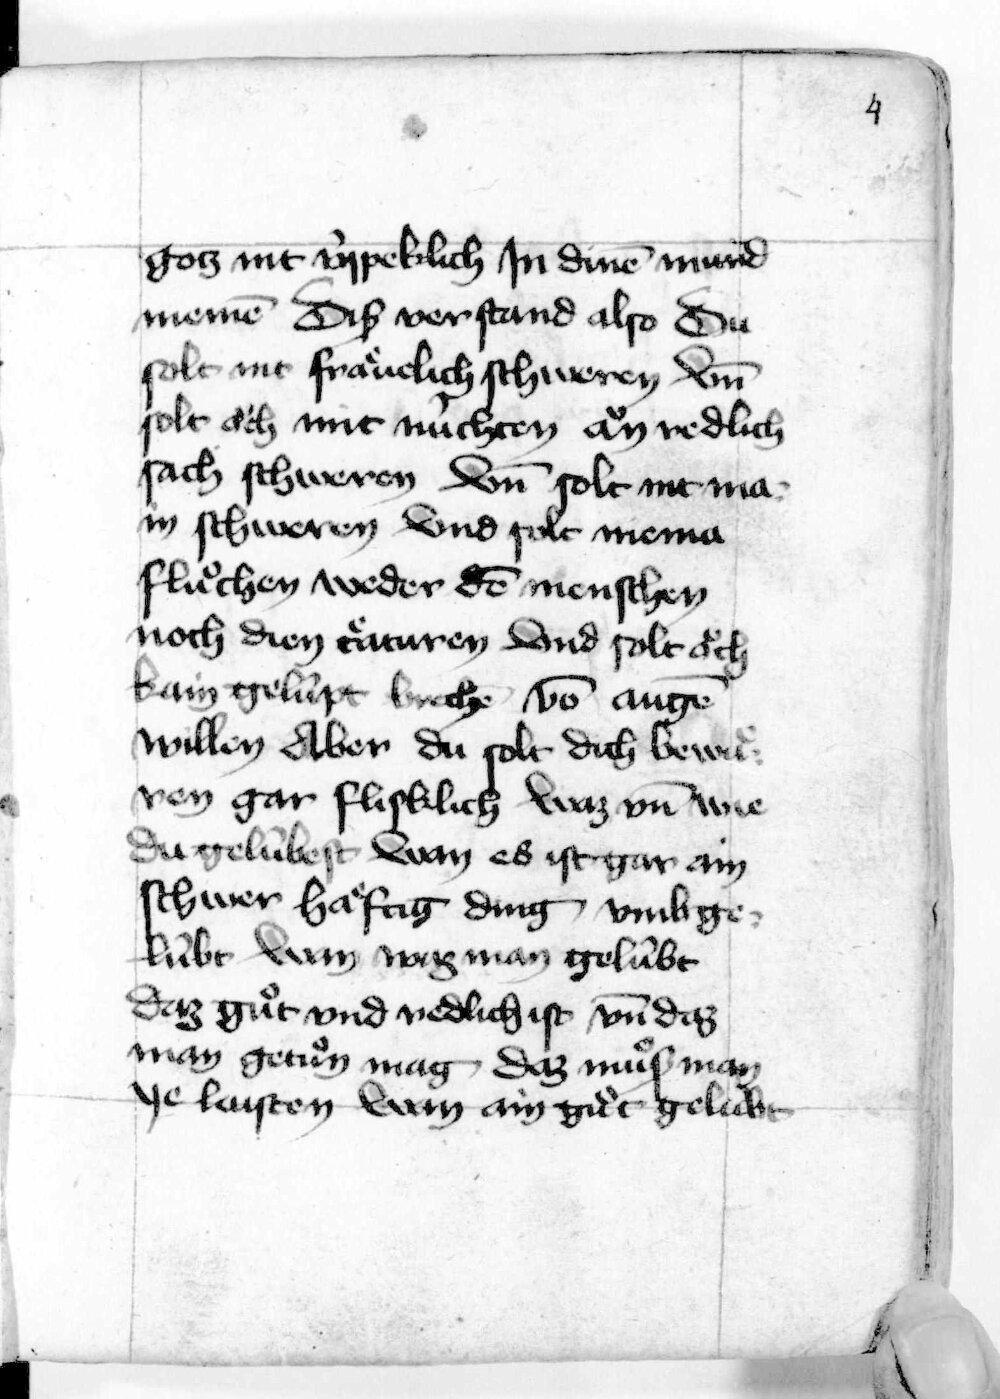 4
gotz nit v̈ppeklich In dinē mund
nemē Diß verstand also Du
solt nit fräuelich schweren Vn̄
solt ǒch mit nüchten ǎn redlich
sach schweren Vn̄ solt nit ma-
in schweren Vnd solt niema
flůchen weder dē menschen
noch dien c̈aturen Vnd solt ǒch
kain gelüpt brechē vō augē
willen Aber du solt dich bewa-
ren gar flisklich Waz vn̄ wie
du gelübest Wan es ist gar ain
schwer häftig ding vmb ge-
lübt Wan waz man gelübt
daz gůt vnd redlich ist vn̄ daz
man getůn mag daz můß man
ye laisten Wan ain gůt gelübt